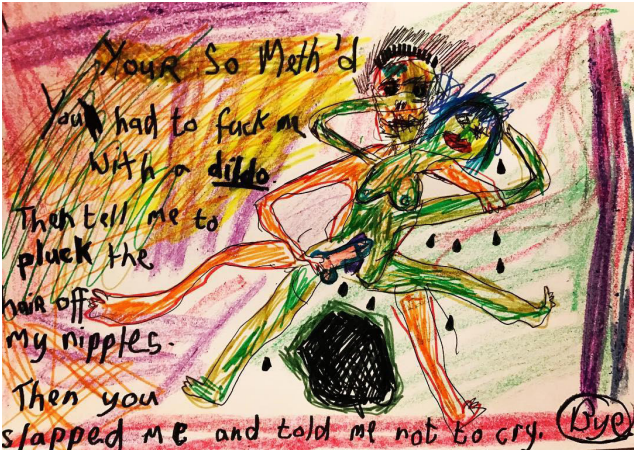 Your So Meth'd
You had to fuck me
with a dildo.
Then tell me to
pluck the
hair off
my nipples.
Then you
slapped me and told me not to cry. Bye